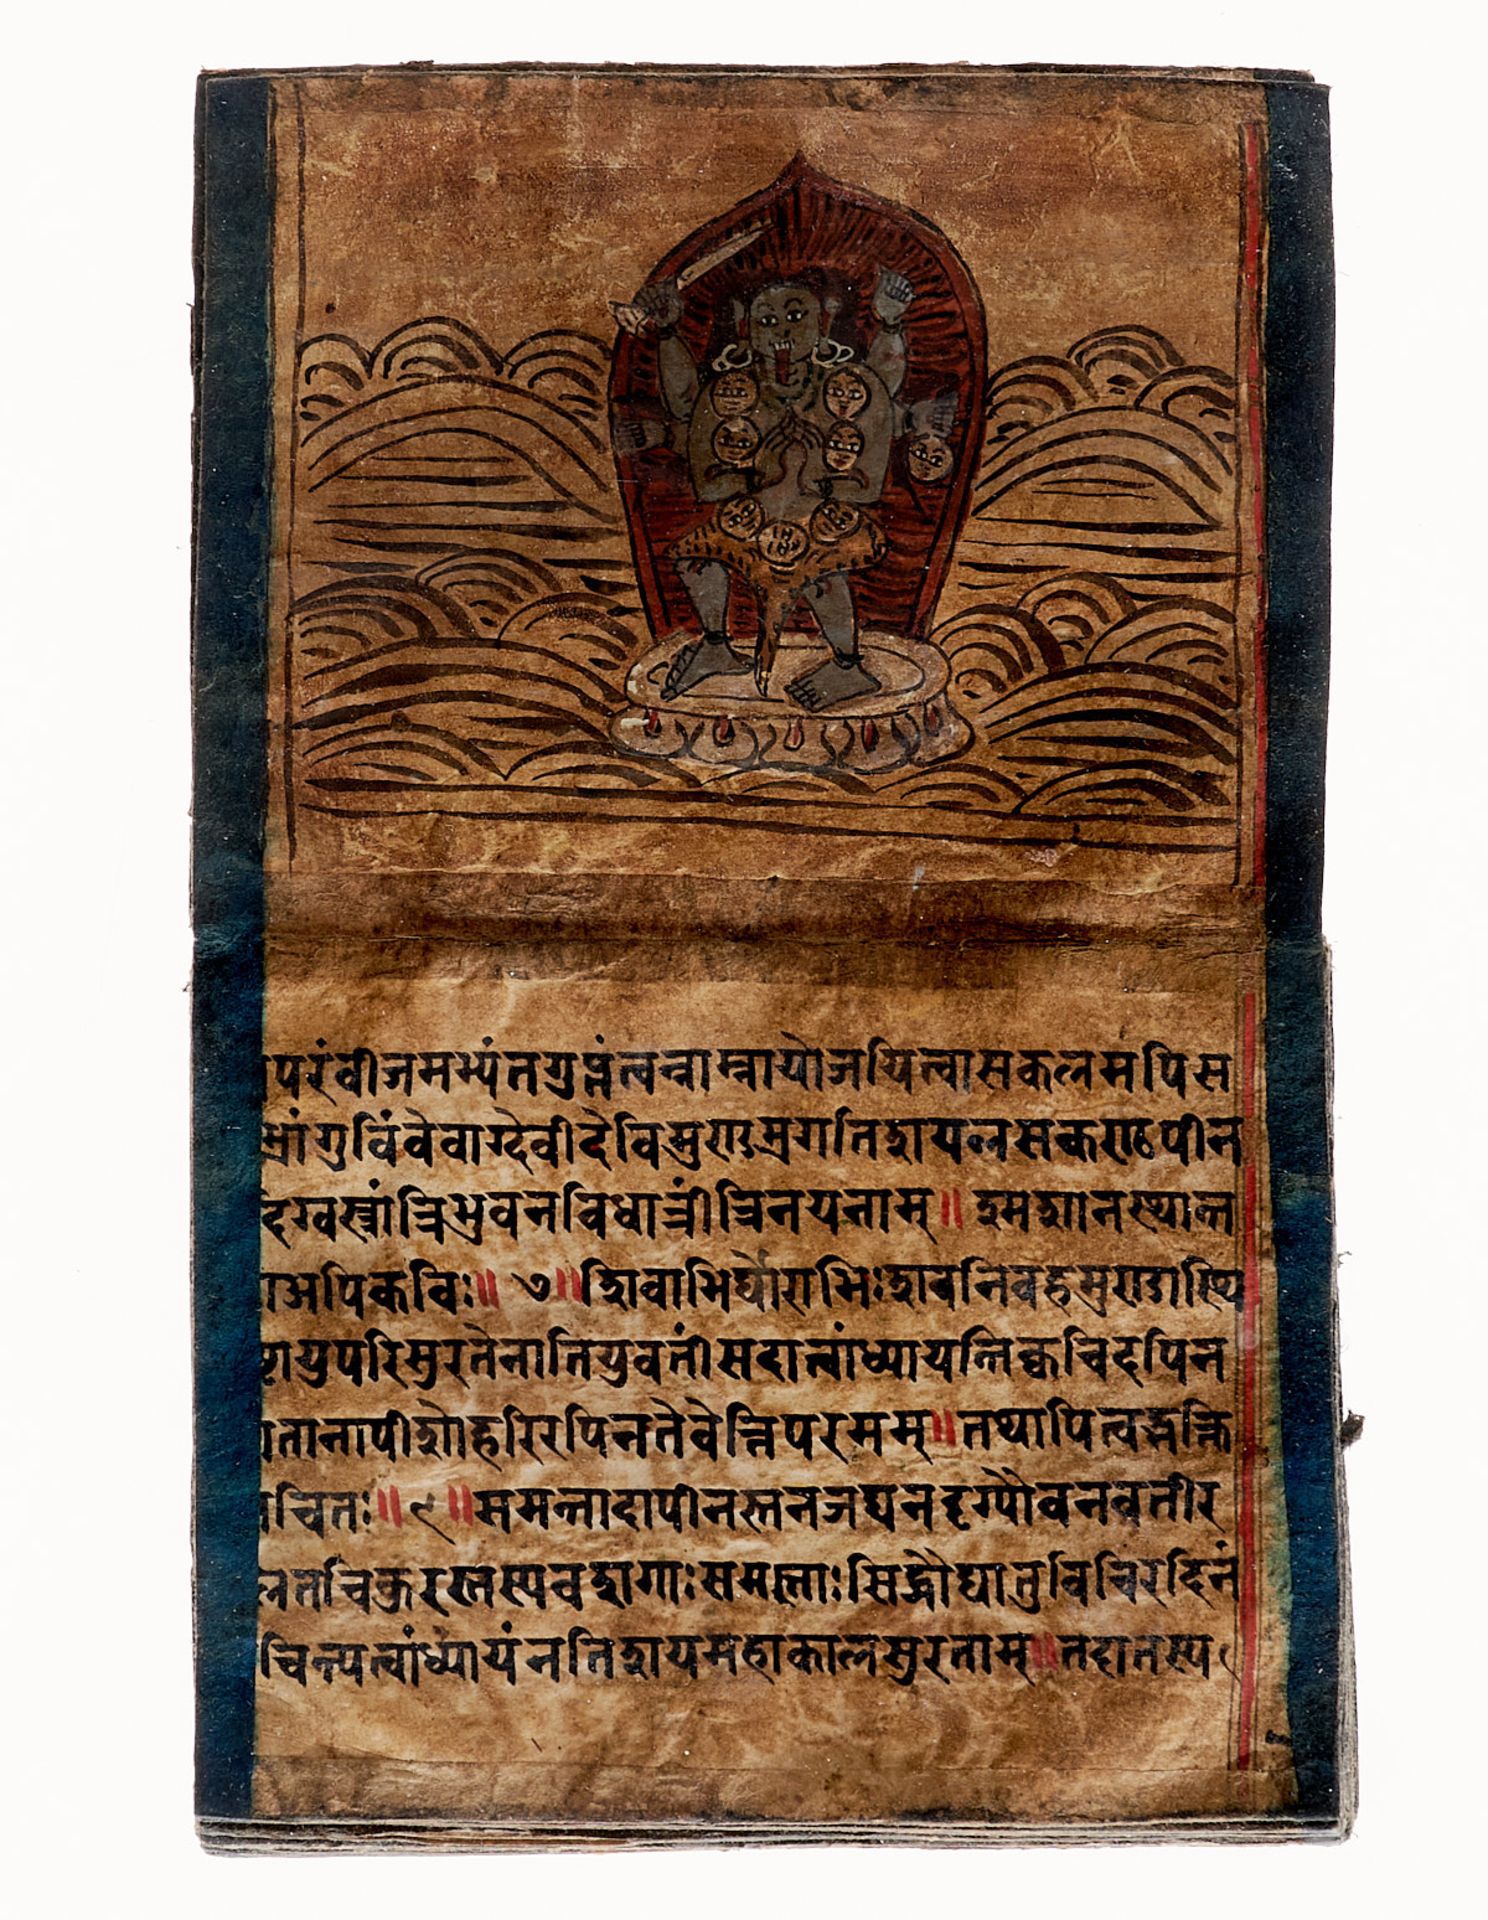 परंवीजमभ्यंतगुप्तंत्वन्नाम्नायोजयित्वासकलमपिस
गुर्विंवैवाग्देवीदेविमुराडस्रगतिशयलसत्कराठपीन
दिग्वस्त्रांत्रिभुवनविधात्रींत्रिनयनाम्॥ श्मशानस्थाल
अपिकविः॥ ७॥ शिवाभिर्घोराभिःशवनिवहमुराडास्थि
युपरिसुरतेनातियुवतींसदात्वांध्यायन्तिक्वचिदपिन
तानापीशोहरिरपिनतेवेत्तिपरमम्॥तथापित्वद्भक्ति
चितः॥ ९॥समन्तादापीनस्तनजघनदृग्यौवनवतीर
लतचिकुरस्तस्यवशगाः समस्ताःसिद्धौघाभुविचिरदिनं
चिन्त्यत्वांध्यायंनतिशयमहाकालसुरताम्॥तदातस्य